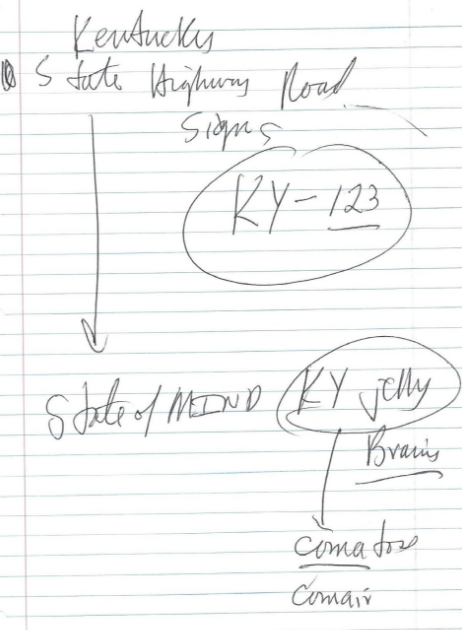 Kentucky
State Highway Road
Signs
KY-123
State of MIND KY jelly
Brains
comatose
Comair